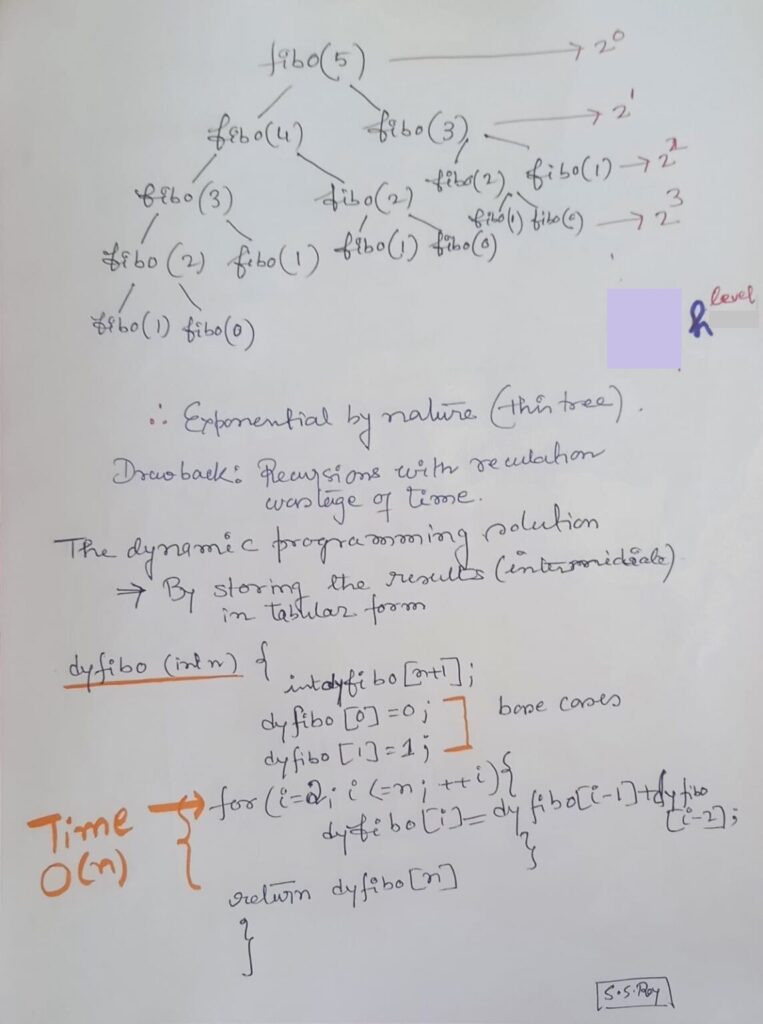 fibo(5) → 2^0
fibo(4) fibo(3) → 2^1
fibo(3) fibo(2) fibo(2) fibo(1) → 2^2
fibo(1) fibo(0) → 2^3
fibo(2) fibo(1) fibo(1) fibo(0)
fibo(1) fibo(0)
level
∴ Exponential by nature (this tree).
Drawback: Recursions with
wastage of time.
The dynamic programming solution
⇒ By storing the results (intermidiate)
in tabular form
dyfibo (int n) {
int dyfibo[n+1];
dyfibo [0]=0;
dyfibo [1]=1;
base cases
for (i=2; i <=n; ++i){
dyfibo[i]=dyfibo[i-1]+dyfibo
[i-2];
}
Time
O(n)
return dyfibo[n]
}
S.S.Roy